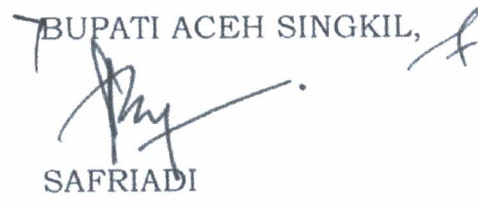 BUPATI ACEH SINGKIL,
SAFRIADI